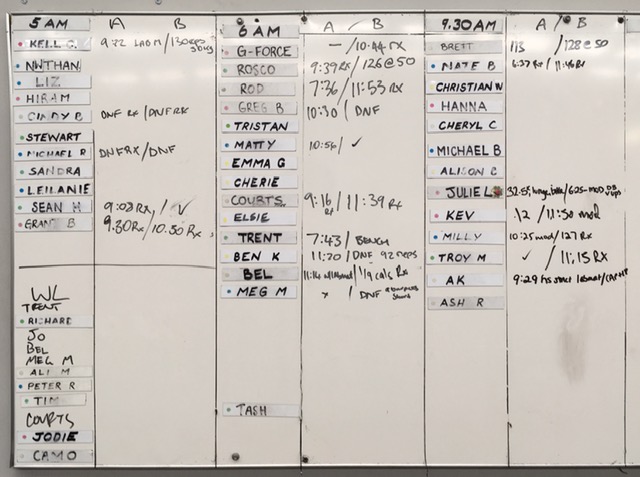 5 AM A B
KELL G. 9:22 / 130 reps
NWTHAN
LIZ
HIRAM
CINDY B DNF RX / DNF RX
STEWART
MICHAEL R DNF RX / DNF
SANDRA
LEILANIE
SEAN H 9:08 RX / ✓
GRANT B 9.30 RX / 10.30 RX
WL
TRENT
RICHARD
JO
BEL
MEG M
ALI M
PETER R
TIM
COURTS
JODIE
CAMO
6 AM A / B
G-FORCE — / 10.44 RX
ROSCO 9:39 RX / 126 @ 50
ROD 7:36 / 11:53 RX
GREG B 10:30 / DNF
TRISTAN
MATTY 10:56 / ✓
EMMA G
CHERIE
COURTS. 9:16 RX / 11:39 RX
ELSIE
TRENT 7:43 / BENCH
BEN K 11:20 / DNF 92 REPS
BEL 11:14 / 119 cals RX
MEG M x / DNF
TASH
9.30 AM A / B
BRETT 113 / 128 @ 50
NATE B 6:37 RX / 11:46 RX
CHRISTIAN W
HANNA
CHERYL C
MICHAEL B
ALISON C
JULIE L
KEV 12 / 11:50 mod
MILLY 10:25 mod / 127 RX
TROY M ✓ / 11:15 RX
AK 9:29
ASH R